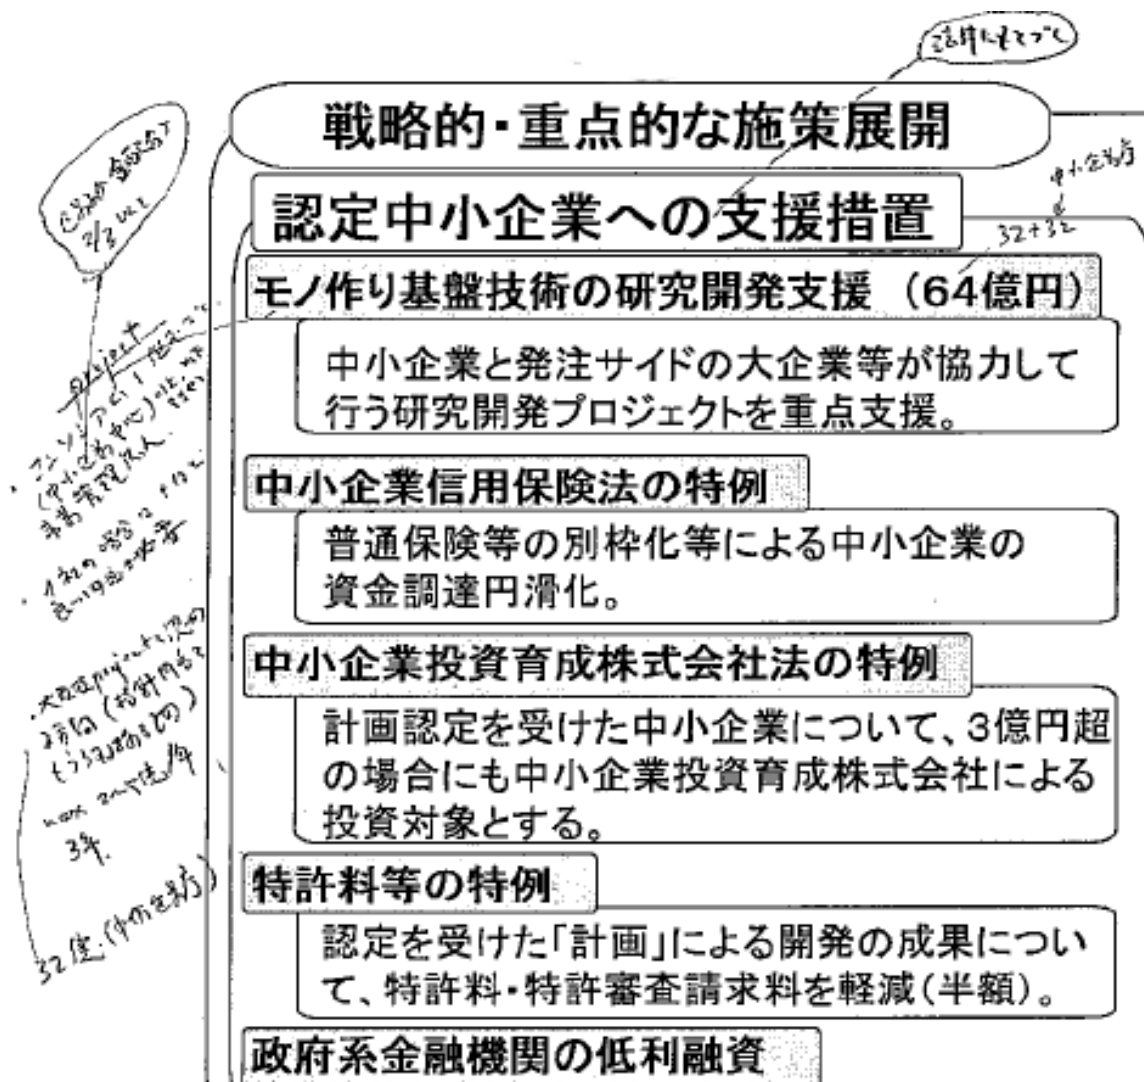 法律にもとづく
戦略的・重点的な施策展開
中小企業庁
認定中小企業への支援措置
32+32
モノ作り基盤技術の研究開発支援 （64億円）
中小企業と発注サイドの大企業等が協力して
行う研究開発プロジェクトを重点支援。
中小企業信用保険法の特例
普通保険等の別枠化等による中小企業の
資金調達円滑化。
中小企業投資育成株式会社法の特例
計画認定を受けた中小企業について、3億円超
の場合にも中小企業投資育成株式会社による
投資対象とする。
特許料等の特例
認定を受けた「計画」による開発の成果につい
て、特許料・特許審査請求料を軽減（半額）。
政府系金融機関の低利融資
2/3以上
project
コンソシアム
(中小企業中心)
事業管理法人
1社の場合は
(指針内容
3年.
32億.(中小企業庁)